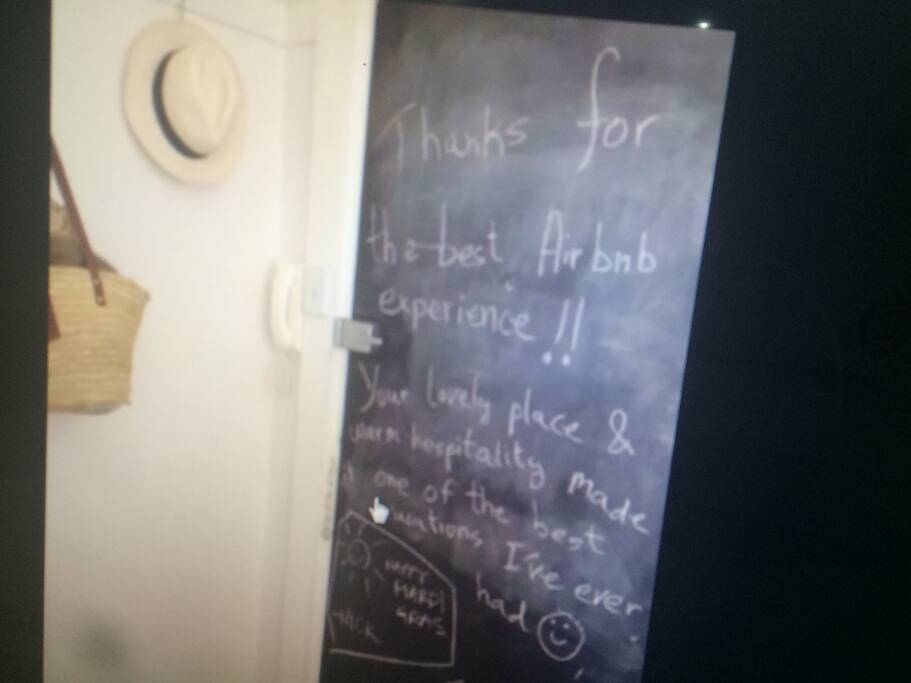 Thanks for
the best Airbnb
experience!!
Your lovely place &
warm hospitality made
it one of the best
vacations I've ever
had
HAPPY
MARDI
GRAS